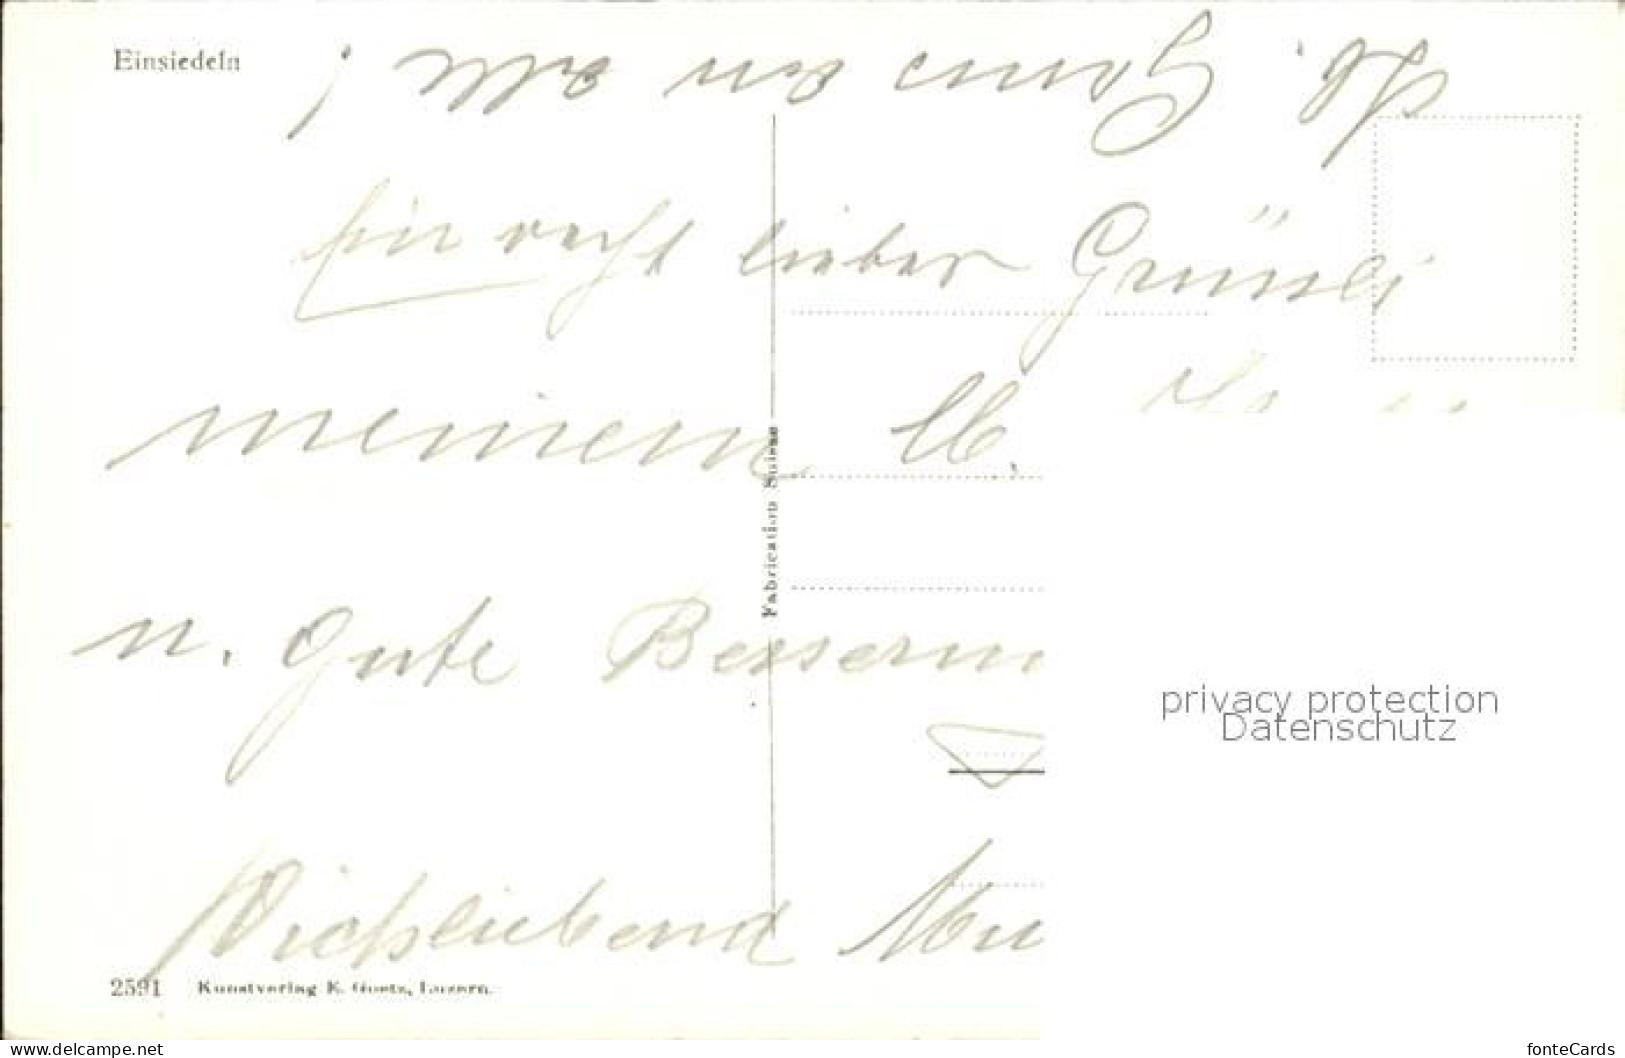 Einsiedeln
Lb. Gruss an alle !
Ein recht lieber Grüssli
meinem lb.
u. gute Besserun
Dichliebend Mu
Fabrication Suisse
2591 Kunstverlag E. Goetz, Luzern.
privacy protection
Datenschutz
www.delcampe.net
fonteCards